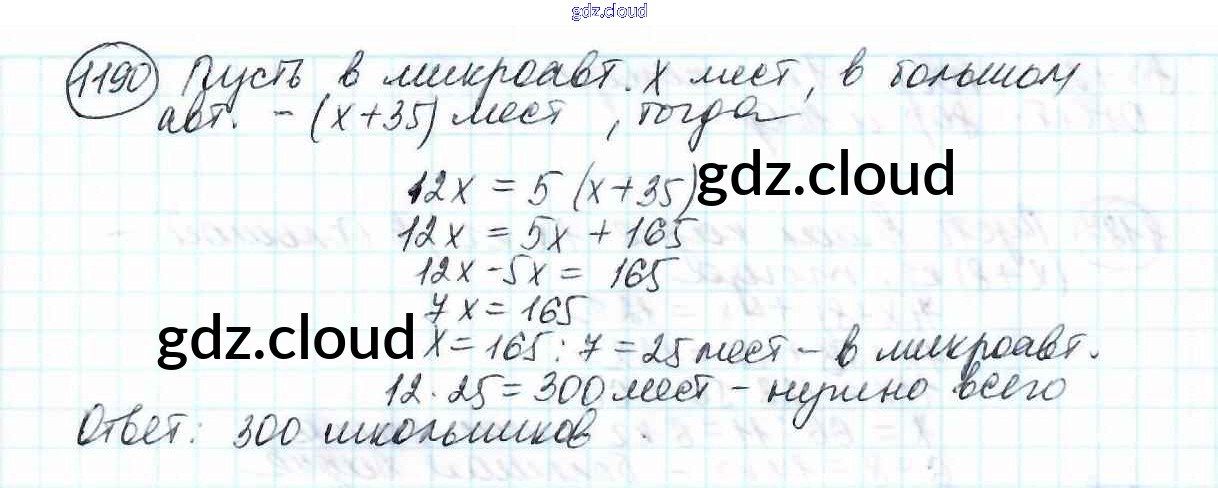 gdz.cloud
1190 Пусть в микроавт. x мест, в большом
авт. - (x+35) мест, тогда
12x = 5 (x+35)
gdz.cloud
12x = 5x + 165
12x-5x = 165
7x = 165
gdz.cloud
x = 165 : 7 = 25 мест - в микроавт.
12 · 25 = 300 мест - нужно всего
Ответ: 300 школьников